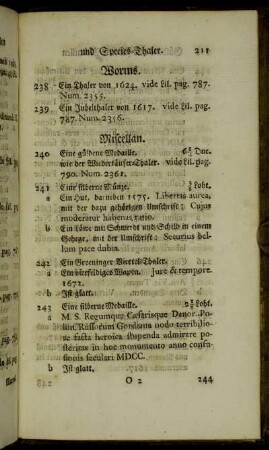 und Species-Thaler. 211
Worms.
238 Ein Thaler von 1624. vide Lil. pag. 787.
Num. 2355.
239 Ein Jubelthaler von 1617. vide Lil. pag.
787. Num. 2356.
Miscellan.
240 Eine güldene Medaille. 6½ Duc.
wie der Wiedertäuffer-Thaler. vide Lil. pag.
790. Num. 2361.
241 Eine silberne Müntze. Loht.
a Ein Hut, darneben 1575. Libertas aurea,
mit der dazu gehörigen Umschrift: Cujus
moderatur habenas ratio.
b Ein Löwe mit Schwerdt und Schild in einem
Gehege, mit der Umschrift: Securius bel-
lum pace dubia.
242 Ein Groeninger Viertel-Thaler.
a Ein vierfeldiges Wapen. Jure & tempore
1672.
b Ist glatt.
243 Eine silberne Medaille. Loht.
a M. S. Regumque Cæsarisque Danor. Po-
lon. Russorum Gordisma nodo terribilio-
ne facta heroica stupenda admirare po-
steritas in hoc monumento anno confu-
sionis seculari MDCC.
b Ist glatt.
O 2 244